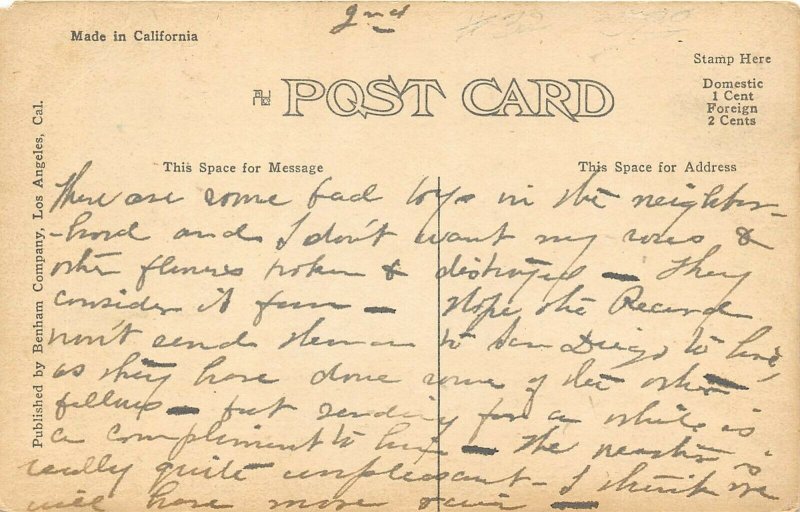 2nd
Made in California
Stamp Here
Domestic
1 Cent
Foreign
2 Cents
POST CARD
Published by Benham Company, Los Angeles, Cal.
This Space for Message
This Space for Address
There are some bad boys in the neighbor-
-hood and I don't want my roses &
other flowers broken & destroyed — They
consider it fun — Hope the Record
won't send him to San Diego to live,
as they have done some of the other
fellows — but sending for a while is
a compliment to him — The weather is
really quite unpleasant — I think we
will have more rain —